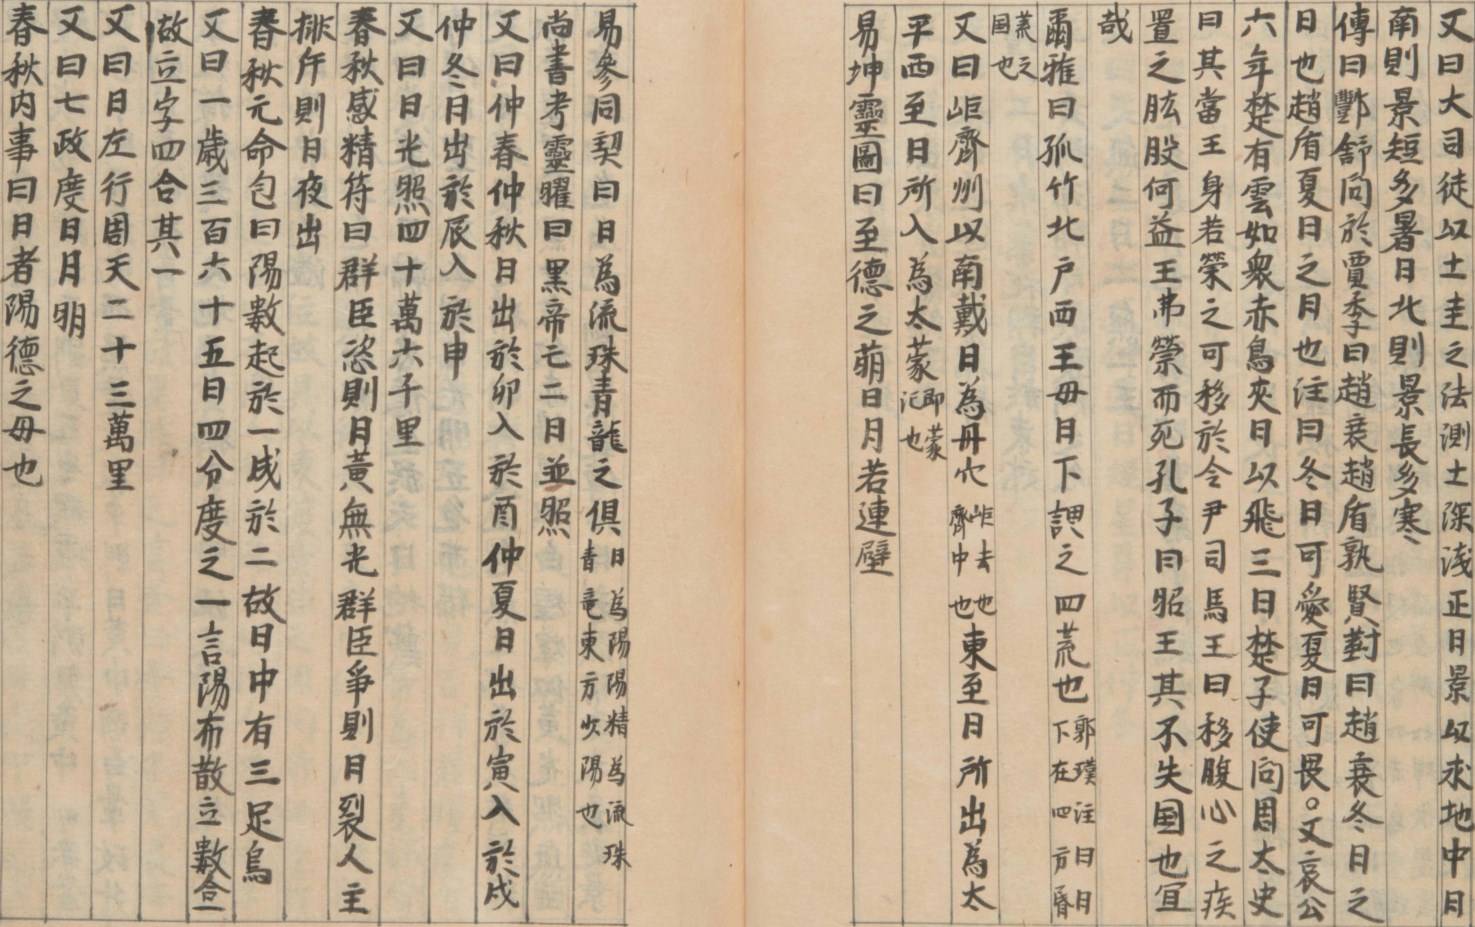 又曰大司徒以土圭之法測土深浅正日景以求地中日
南則景短多暑日北則景長多寒
傳曰酆舒问於賈季曰趙衰趙盾孰賢對曰趙衰冬日之
日也趙盾夏日之日也注曰冬日可愛夏日可畏。又哀公
六年楚有雲如衆赤鳥夾日以飛三日楚子使问周太史
曰其當王身若禜之可移於令尹司馬王曰移腹心之疾
置之肱股何益王弗禜而死孔子曰昭王其不失国也宜
哉
爾雅曰孤竹北户西王母日下謂之四荒也郭璞注曰日下在四方昏
荒之国也
又曰岠齊州以南戴日為丹穴岠去也齊中也東至日所出為太
平西至日所入為太蒙即蒙汜也
易坤靈圖曰至德之萌日月若連壁
易參同契曰日為流珠青龍之俱日為陽陽精為流珠青竜東方少陽也
尚書考靈曜曰黑帝亡二日並照
又曰仲春仲秋日出於卯入於酉仲夏日出於寅入於戌
仲冬日出於辰入於申
又曰日光照四十萬六千里
春秋感精符曰群臣恣則日黃無光群臣爭則日裂人主
排斥則日夜出
春秋元命包曰陽数起於一成於二故日中有三足烏
又曰一歳三百六十五日四分度之一言陽布散立數合
故立字四合其一
又曰日左行周天二十三萬里
又曰七政度日月明
春秋内事曰日者陽德之母也